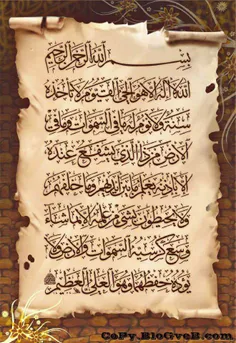 بسم الله الرحمن الرحيم
الله لا إله إلا هو الحي القيوم لا تأخذه
سنة ولا نوم له ما في السموات وما في
الأرض من ذا الذي يشفع عنده
إلا بإذنه يعلم ما بين أيديهم وما خلفهم
ولا يحيطون بشيء من علمه إلا بما شاء
وسع كرسيه السموات والأرض ولا
يؤده حفظهما وهو العلي العظيم
CoPy.BloGveB.CoM